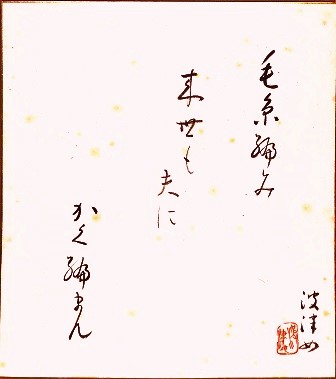 毛糸編み
来世も
夫に
かく編まん
波津女